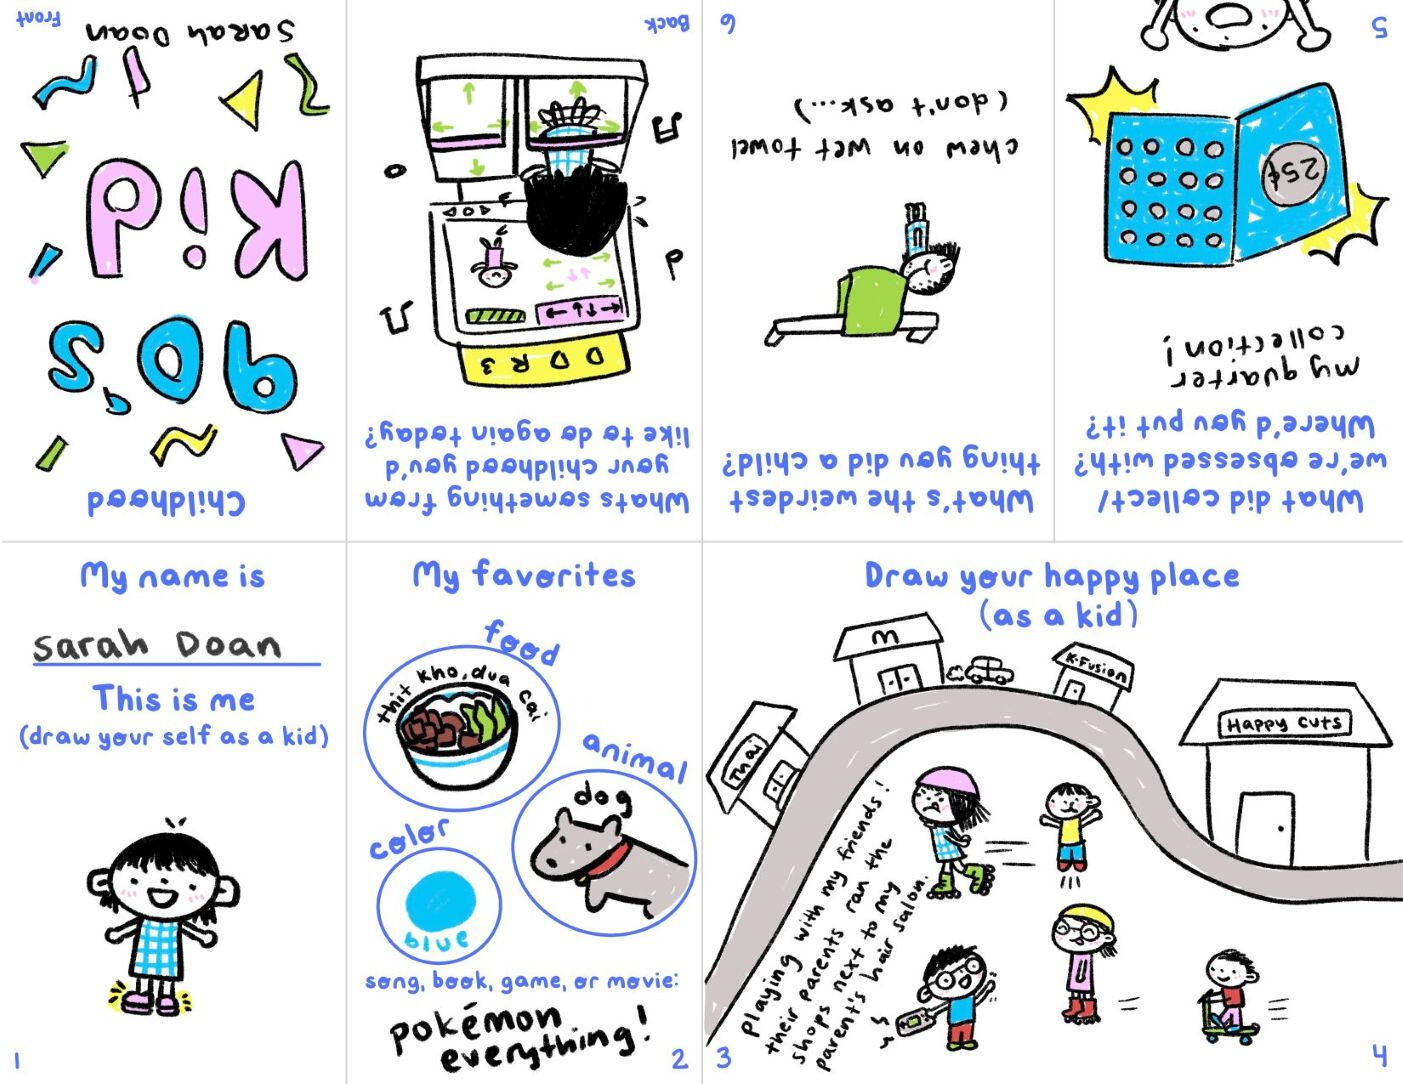 Childhood
90's
Kid
Sarah Doan
Front
Whats something from
your childhood you'd
like to do again today?
DDR3
Back
What's the weirdest
thing you did a child?
chew on wet towel
(don't ask...)
6
What did collect/
we're obsessed with?
Where'd you put it?
my quarter
collection!
25¢
5
My name is
Sarah Doan
This is me
(draw your self as a kid)
1
My favorites
food
thit kho, dua cai
animal
dog
color
blue
song, book, game, or movie:
pokémon
everything!
2
Draw your happy place
(as a kid)
Thai
M
K-Fusion
Happy Cuts
playing with my friends!
their parents ran the
shops next to my
parent's hair salon.
3
4